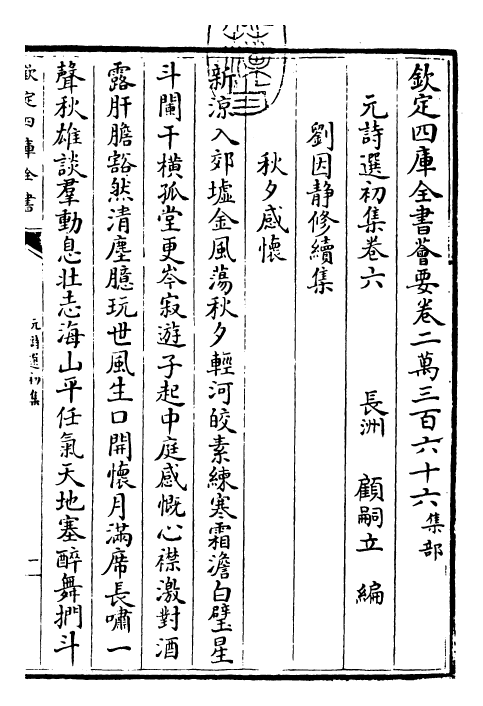 欽定四庫全書薈要卷二萬三百六十六集部
元詩選初集卷六 長洲 顧嗣立 編
劉因靜修續集
秋夕感懷
新涼入郊墟金風蕩秋夕輕河皎素練寒霜澹白璧星
斗闌干橫孤堂更岑寂遊子起中庭感慨心襟激對酒
露肝膽豁然清塵臆玩世風生口開懷月滿席長嘯一
聲秋雄談羣動息壯志海山平任氣天地塞醉舞捫斗
欽定四庫全書
元詩選初集
一